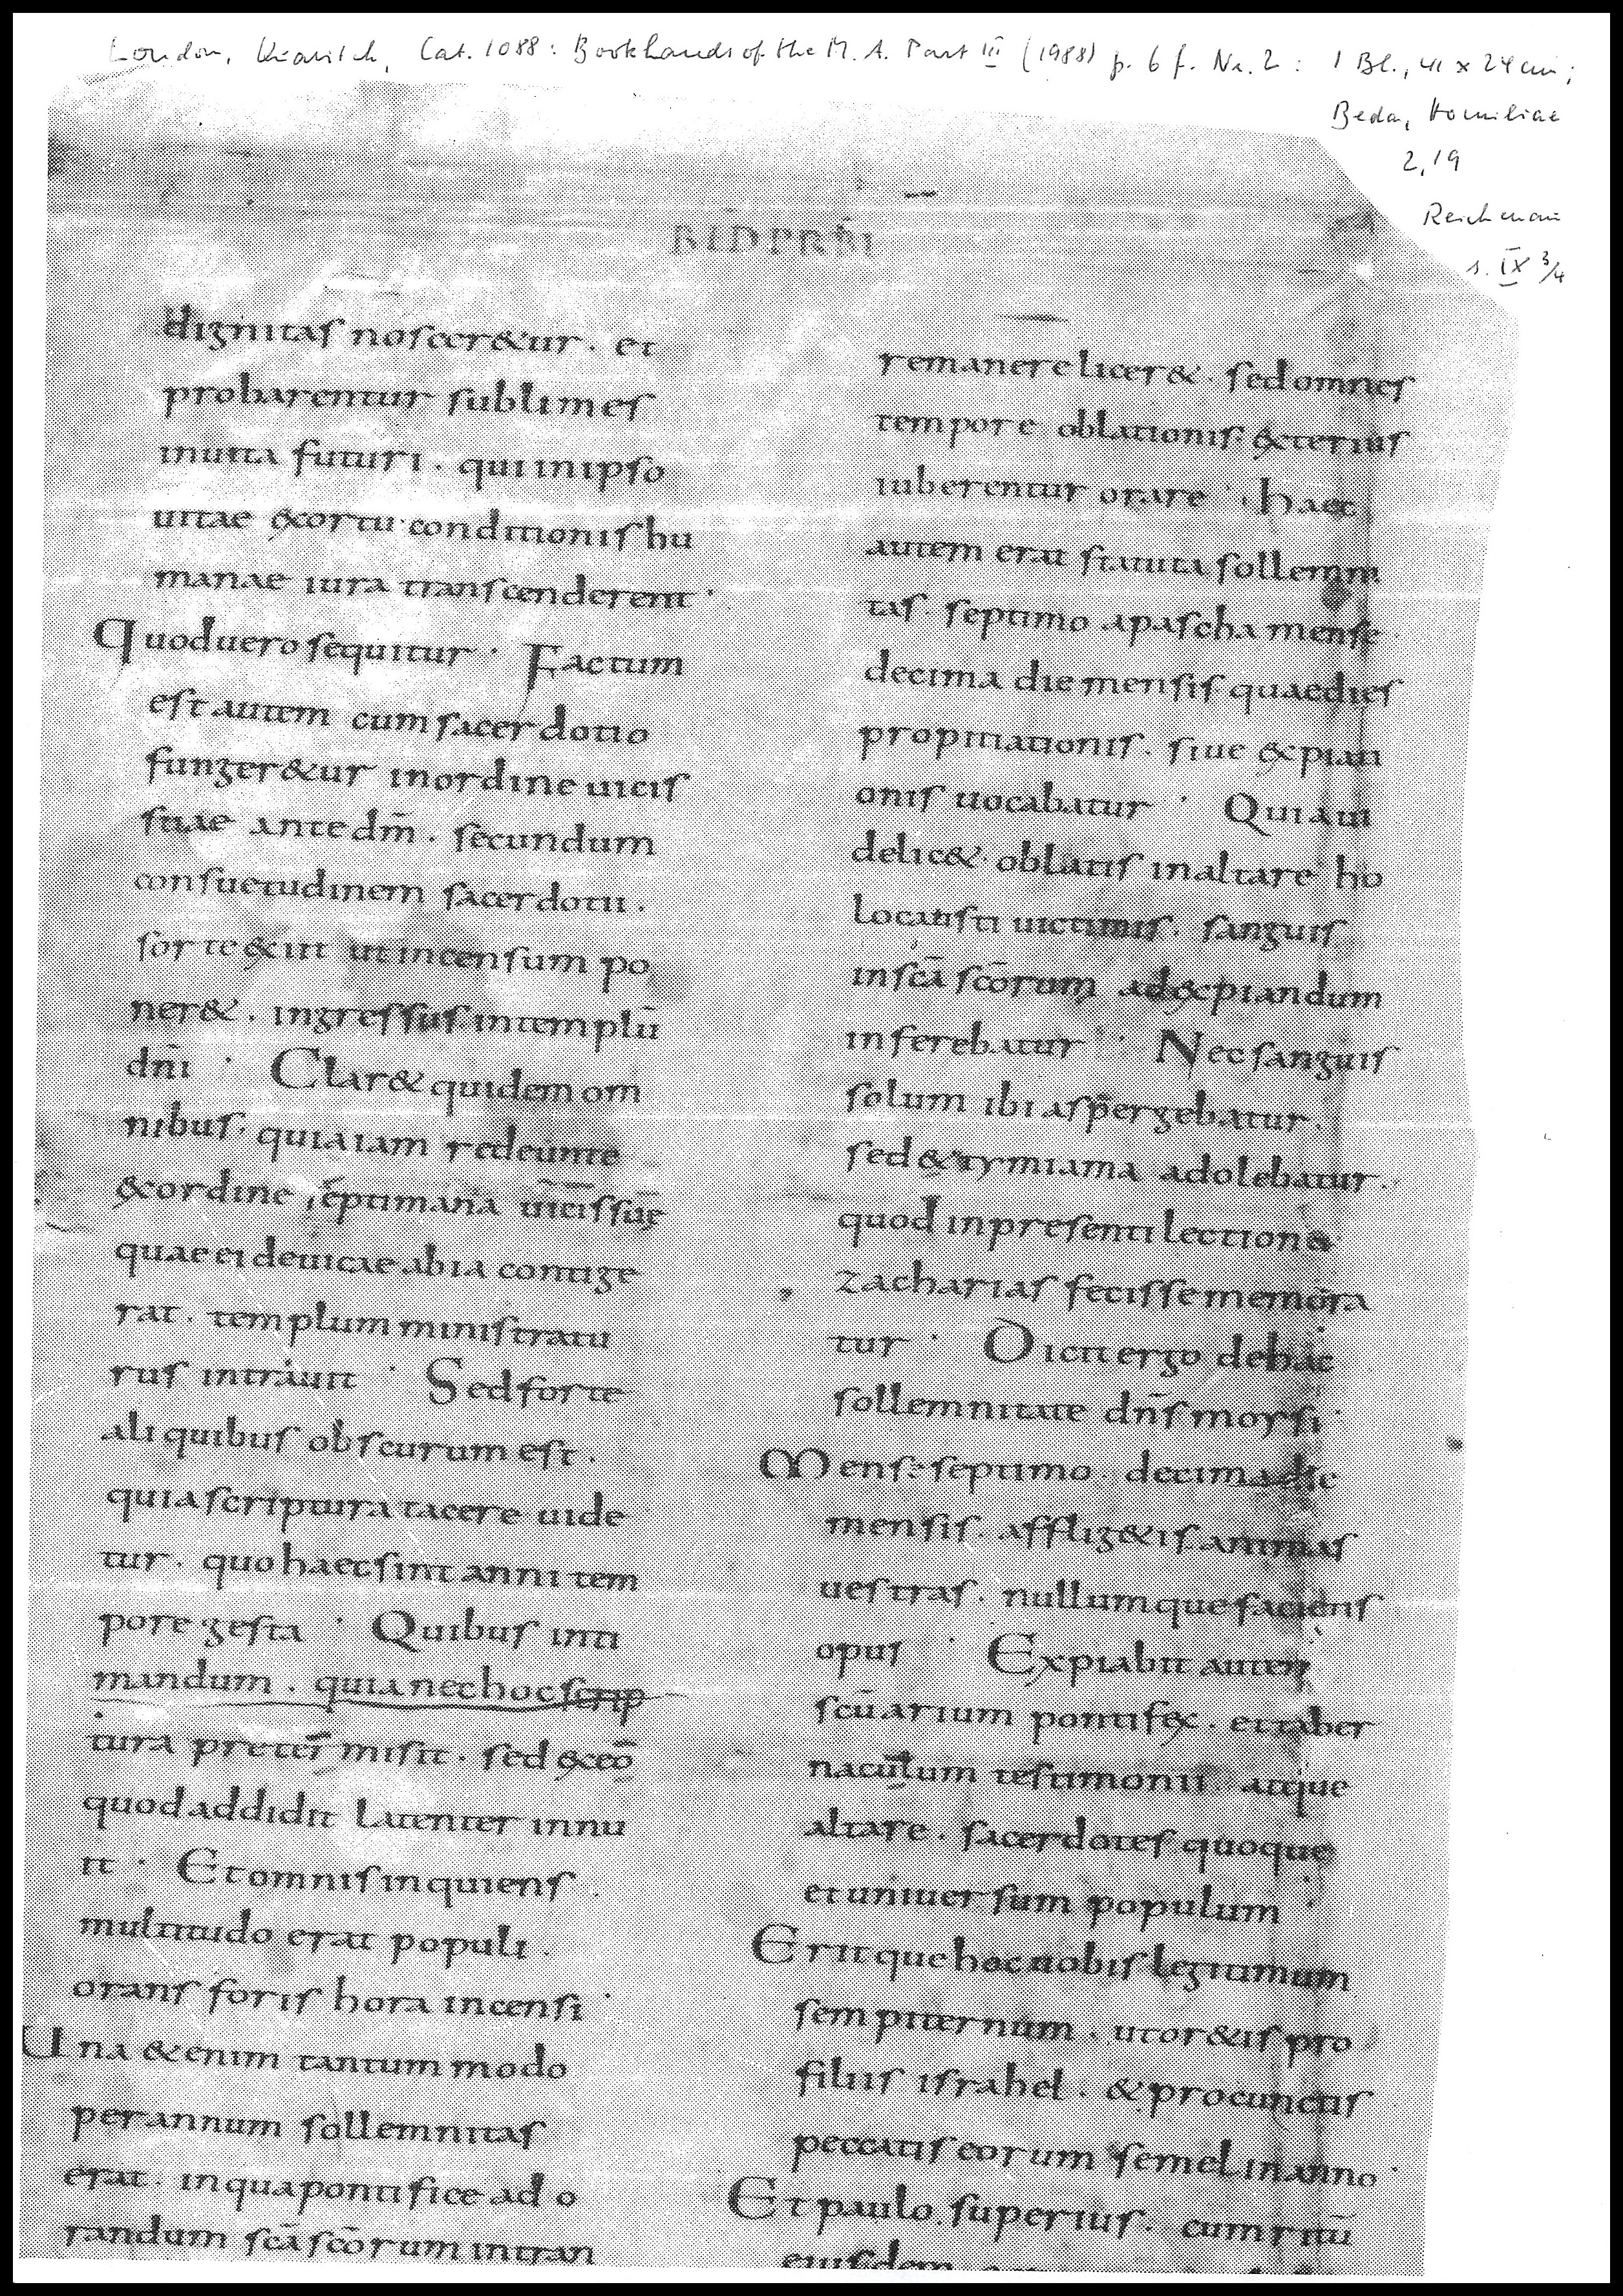 London, Quaritch, Cat. 1088: Bookhands of the M. A. Part III (1988) p. 6 f. Nr. 2 : 1 Bl., 41 x 24 cm;
Beda, Homiliae
2,19
Reichenau
s. IX 3/4
BED PRBI
dignitaſ noſcer&ur . et
probarentur ſublimeſ
inuita futuri . qui inipſo
uitae exortu conditioniſ hu
manae iura tranſcenderent ·
Quoduero ſequitur · Factum
eſt autem cumſacerdotio
funger&ur inordine uiciſ
ſuae ante dm̄ . ſecundum
conſuetudinem ſacerdotii .
ſorte exiit ut incenſum po
ner& . ingreſſuſ intemplū
dn̄i · Clar& quidem om
nibuſ . quia iam redeunte
exordine ſeptimana uiciſſuę
quae ei deuicae abia contige
rat . templum miniſtratu
ruſ intrauit · Sed forte
aliquibuſ obſcurum eſt .
quia ſcriptura tacere uide
tur . quo haec ſint anni tem
pore geſta · Quibuſ inti
mandum . quia nec hoc ſcrip
tura pretermiſit . ſed exeo
quod addidit latenter innu
it · Et omniſ inquienſ .
multitudo erat populi .
oranſ foriſ hora incenſi ·
Una &enim tantummodo
perannum ſollemnitaſ
erat . inqua pontifice ad o
randum ſc̄a ſc̄orum intran
remanere licer& . ſed omneſ
tempore oblationiſ exteriuſ
iuberentur orare · haec
autem erat ſtatuta ſollemni
taſ . ſeptimo apaſcha menſe
decima die menſiſ quae dieſ
propitiationiſ . ſiue expiati
oniſ uocabatur · Quia ui
delic& oblatiſ inaltare ho
locauſti uictimiſ . ſanguiſ
inſc̄a ſc̄orum adexpiandum
inferebatur · Nec ſanguiſ
ſolum ibi aſpergebatur .
ſed & tymiama adolebatur .
quod inpreſenti lectione
zachariaſ feciſſe memora
tur · Dicit ergo dehac
ſollemnitate dn̄ſ moyſi ·
Menſe ſeptimo . decima die
menſiſ . afflig&iſ animaſ
ueſtraſ . nullumque facienſ
opuſ · Expiabit autem
ſcūarium pontifex . et taber
naculum teſtimonii atque
altare . ſacerdoteſ quoque
et uniuerſum populum ·
Eritque hoc uobiſ legitimum
ſempiternum . ut or&iſ pro
filiiſ iſrahel . & procunctiſ
peccatiſ eorum ſemel inanno ·
Et paulo ſuperiuſ . cum ritū
eiuſdem